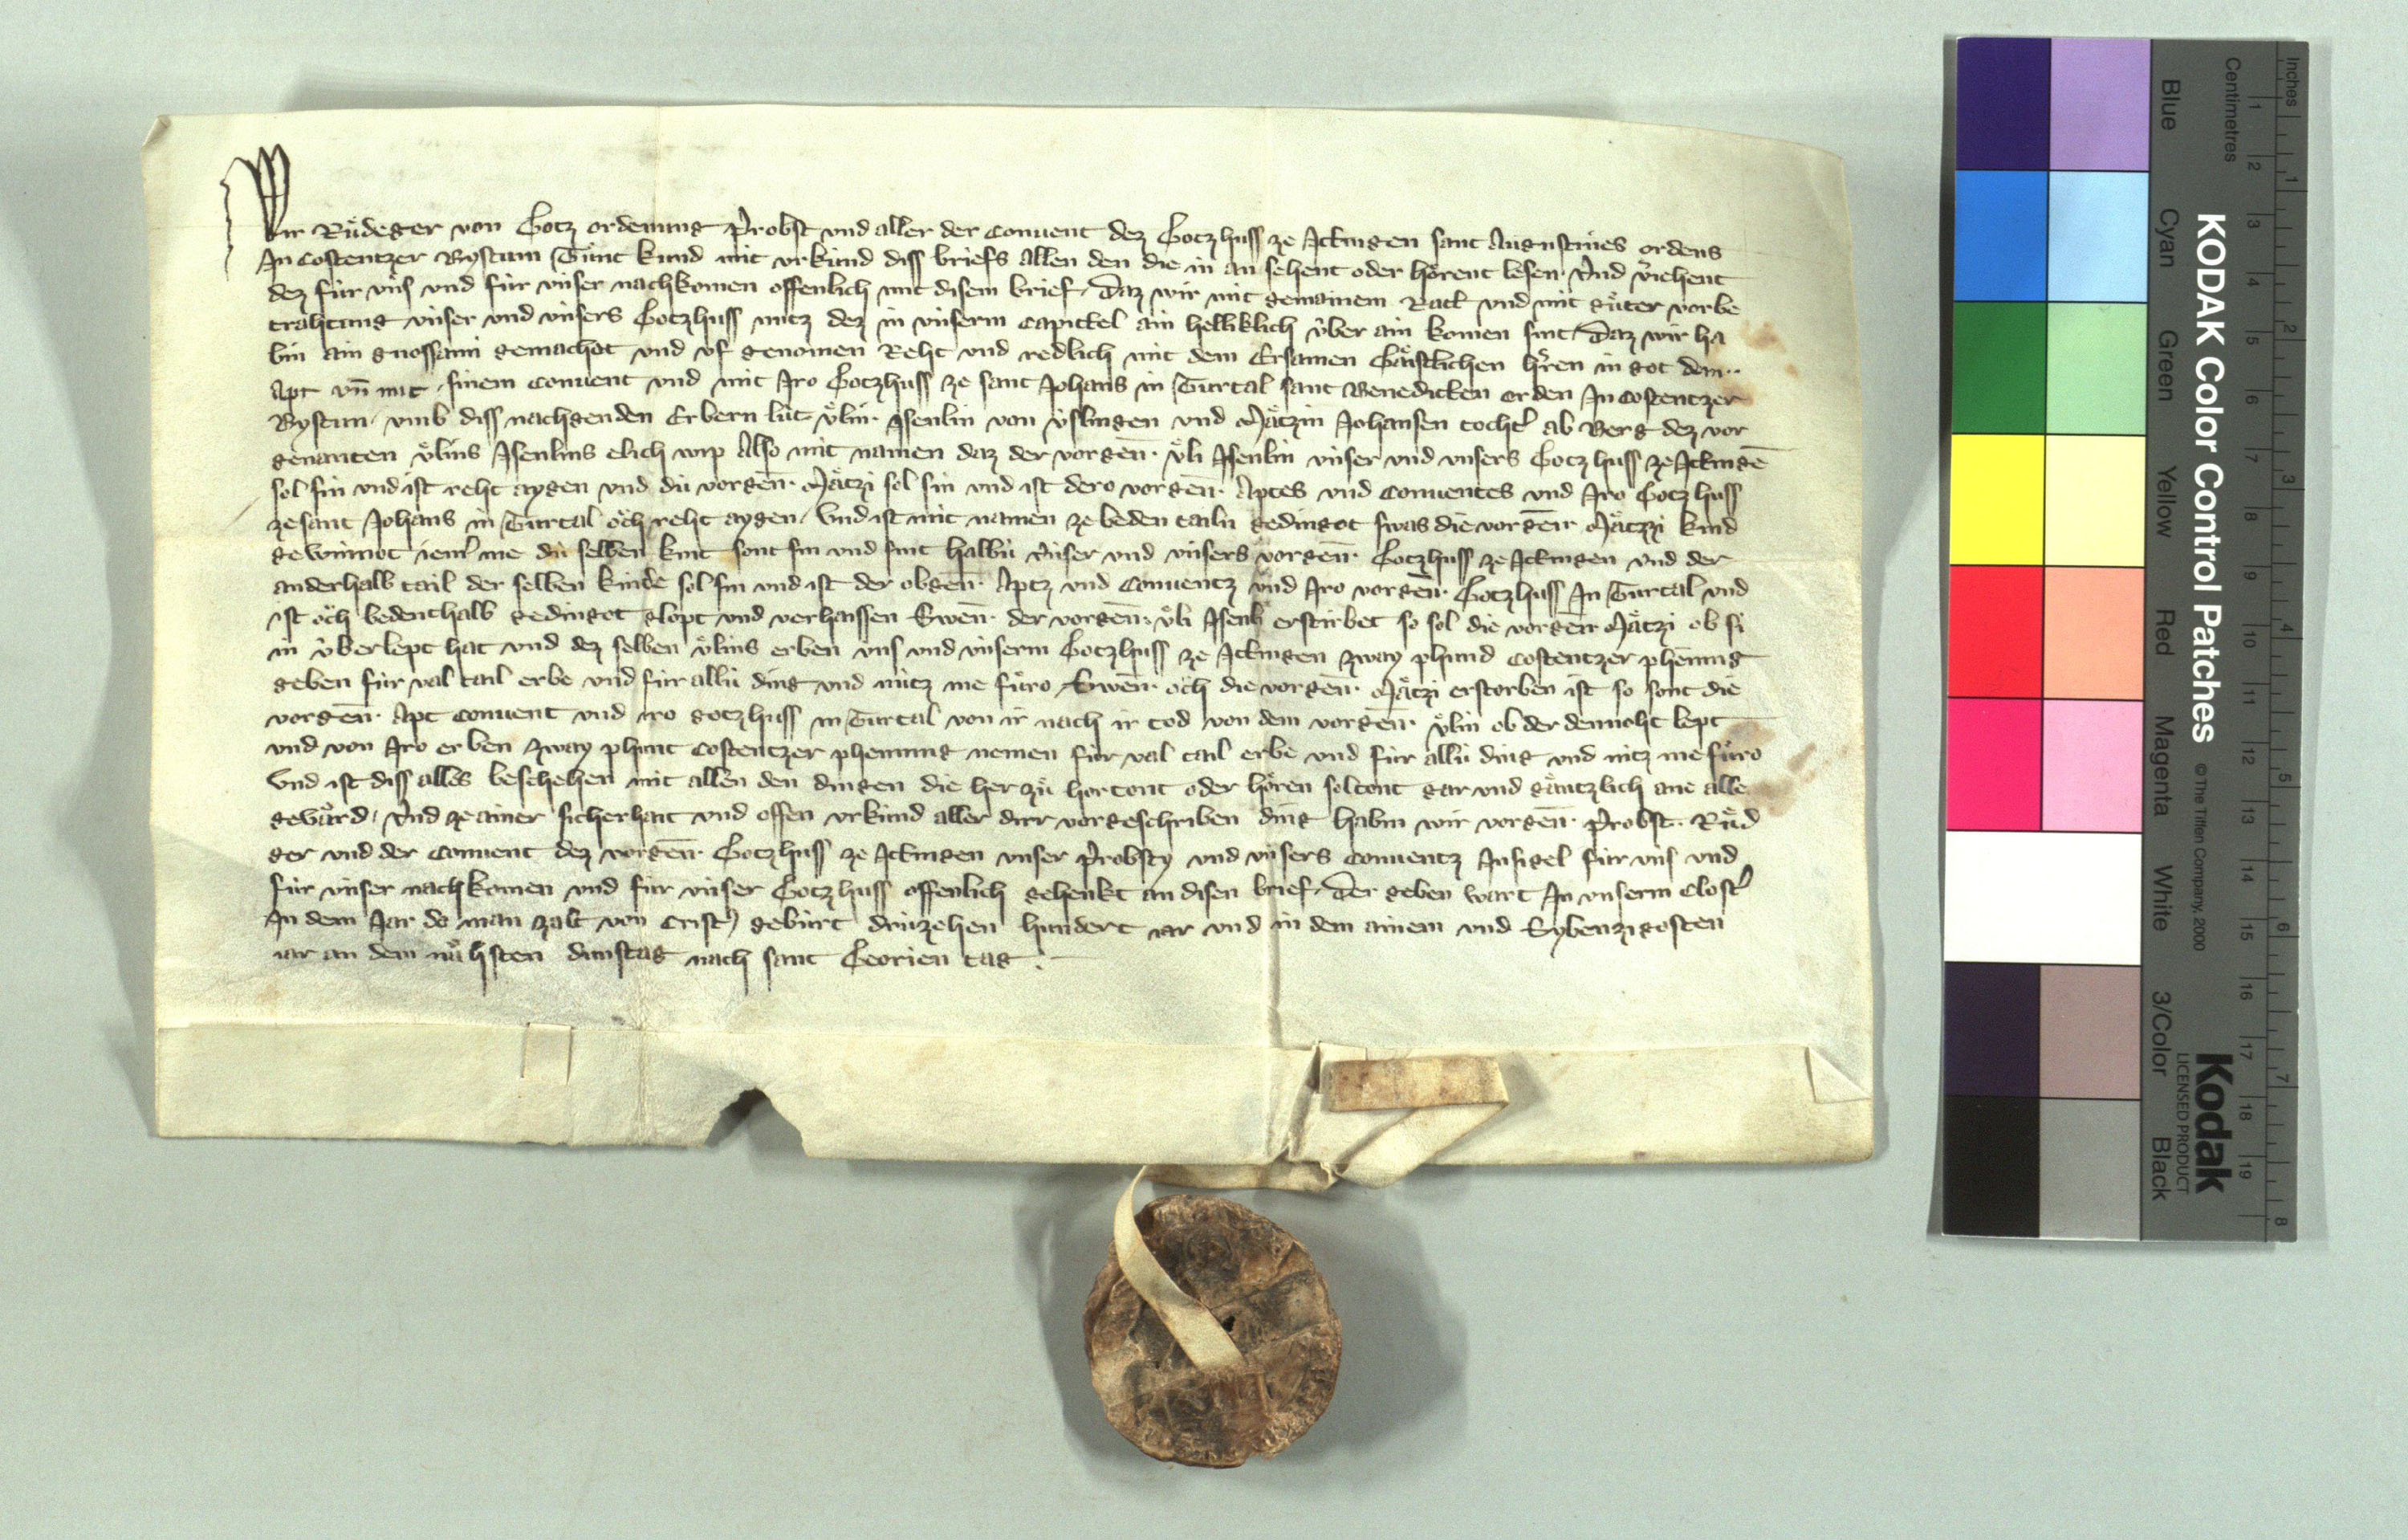 Wir Růdeger von Gotz ordenung Probst vnd aller der Conuent dez Gotzhuss ze Ickingen sant Augustines ordens
In Costentzer Bystum Tůnt kund mit vrkund diss briefs Allen den die in an sehent oder hörent lesen Vnd veriehent
dez für vns vnd für vnser nachkomen offenlich mit disem brief, Daz wir mit gemainem Raut vnd mit gůter vorbe
trahtung vnser vnd vnsers Gotzhuss nutz dez in vnserm Capittel ain helliklich über ain komen sint, Daz wir ha
bin ain gnossami gemachot vnd vf genomen Reht vnd redlich mit dem Ersamen Gaistlichen hren in got dem..
Apt vn̄ mit sinem Conuent vnd mit Jro Gotzhuss ze sant Johans in Turtal sant Benedicten orden In Costentzer
Bystum, vmb diss nachgenden Erbern lüt Ůlin Isenlin von vslingen vnd Mätzin Johansen tocht ab Berg dez vor
genanten Ůlins Isenlins elich wip Also mit namen daz der vorgen̄. Ůli Isenlin vnser vnd vnsers Gotzhuss ze Ickingē
sol sin vnd ist reht aygen vnd dü vorgen̄. Mätzi sol sin vnd ist dero vorgen̄. Aptes vnd Conuentes vnd Jro Gotzhuss
ze sant Johans in Turtal och reht aygen, Vnd ist mit namen ze beden tailn gedingot swas die vorgen̄ Mätzi kind
gewinnot iem me dü selben kint sont sin vnd sint halbü vnser vnd vnsers vorgen̄. Gotzhuss ze Ickingen vnd der
anderhalb tail der selben kinde sol sin vnd ist der obgen̄. Aptz vnd Conuentz vnd Jro vorgen̄. Gotzhuss In Turtal vnd
ist och bedenthalb gedingot glopt vnd verhaissen Swen̄. der vorgen̄. Ůli Isenli erstirbet so sol die vorgen̄ Mätzi ob si
in überlept hat vnd dez selben Ůlins erben vns vnd vnserm Gotzhuss ze Ickingen zway phund Costentzer phenning
geben für val tail erbe vnd für allü ding vnd nütz me füro, Swen̄. och die vorgen̄. Mätzi erstorben ist so sont die
vorgen̄. Apt Conuent vnd iro gotzhuss in Turtal von ir nach ir tod von dem vorgen̄. Ůlin ob der dennoht lept
vnd von Jro erben zway phunt Costentzer phenning nemen für val tail erbe vnd für allü ding vnd nütz me füro
Vnd ist diss alles beschehen mit allen den dingen die her zů hortont oder hören soltont gar vnd gäntzlich ane alle
gewärd, Vnd ze ainer sicherhait vnd offen vrkund aller dirr vorgeschriben ding habin wir vorgen̄. Probst. Růd
ger vnd der Conuent dez vorgen̄. Gotzhuss ze Ickingen vnser Probsty vnd vnsers Conuentz Insigel für vns vnd
für vnser nachkomen vnd für vnser Gotzhuss offenlich gehenkt an disen brief, Der geben wart In vnserm Clost
In dem Jar do man zalt von Crist gebürt drüzehen hundert iar vnd in dem ainem vnd Sybenzigosten
iar an dem nähsten dunstag nach sant Georien tag.
KODAK Color Control Patches © The Tiffen Company, 2000
Kodak
LICENSED PRODUCT
Blue Cyan Green Yellow Red Magenta White 3/Color Black
Inches 1 2 3 4 5 6 7 8
Centimetres 1 2 3 4 5 6 7 8 9 10 11 12 13 14 15 16 17 18 19